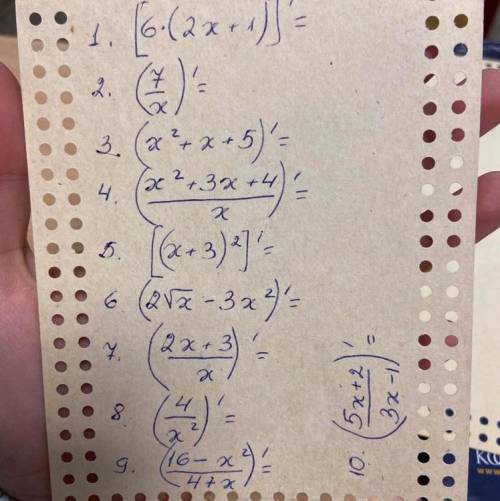 1. [6·(2x+1)]'=
2. (7/x)'=
3. (x²+x+5)'=
4. ((x²+3x+4)/x)'=
5. [(x+3)²]'=
6. (2√x-3x²)'=
7. ((2x+3)/x)'=
8. (4/x²)'=
9. ((16-x²)/(4+x))'=
10. ((5x+2)/(3x-1))'=